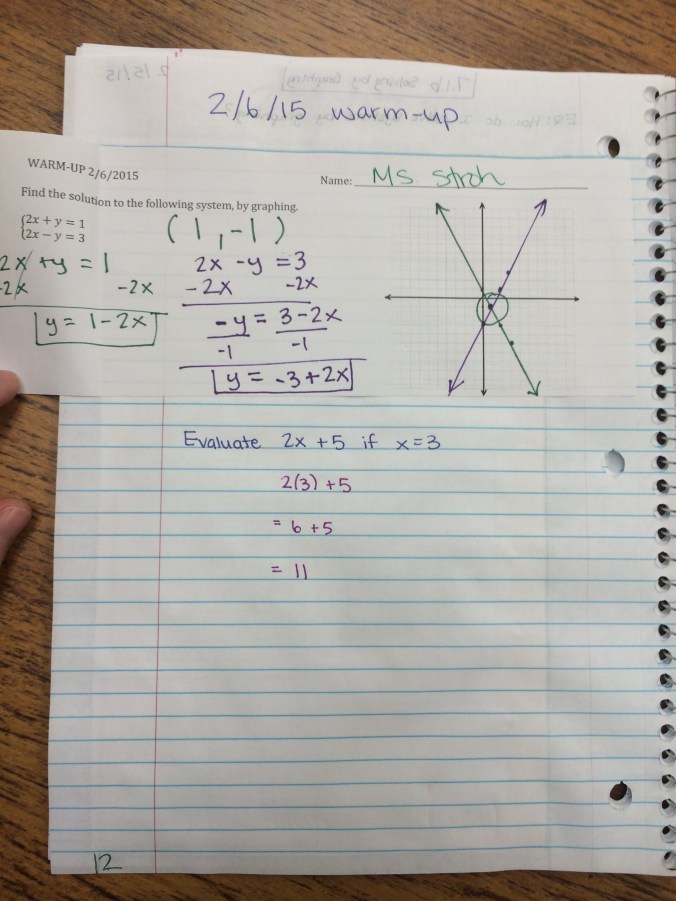 2/6/15 warm-up
WARM-UP 2/6/2015
Name: Ms Stroh
Find the solution to the following system, by graphing.
2x + y = 1
2x − y = 3
(1, -1)
2x + y = 1
-2x -2x
y = 1 - 2x
2x - y = 3
-2x -2x
-y = 3 - 2x
-1 -1
y = -3 + 2x
Evaluate 2x + 5 if x = 3
2(3) + 5
= 6 + 5
= 11
12